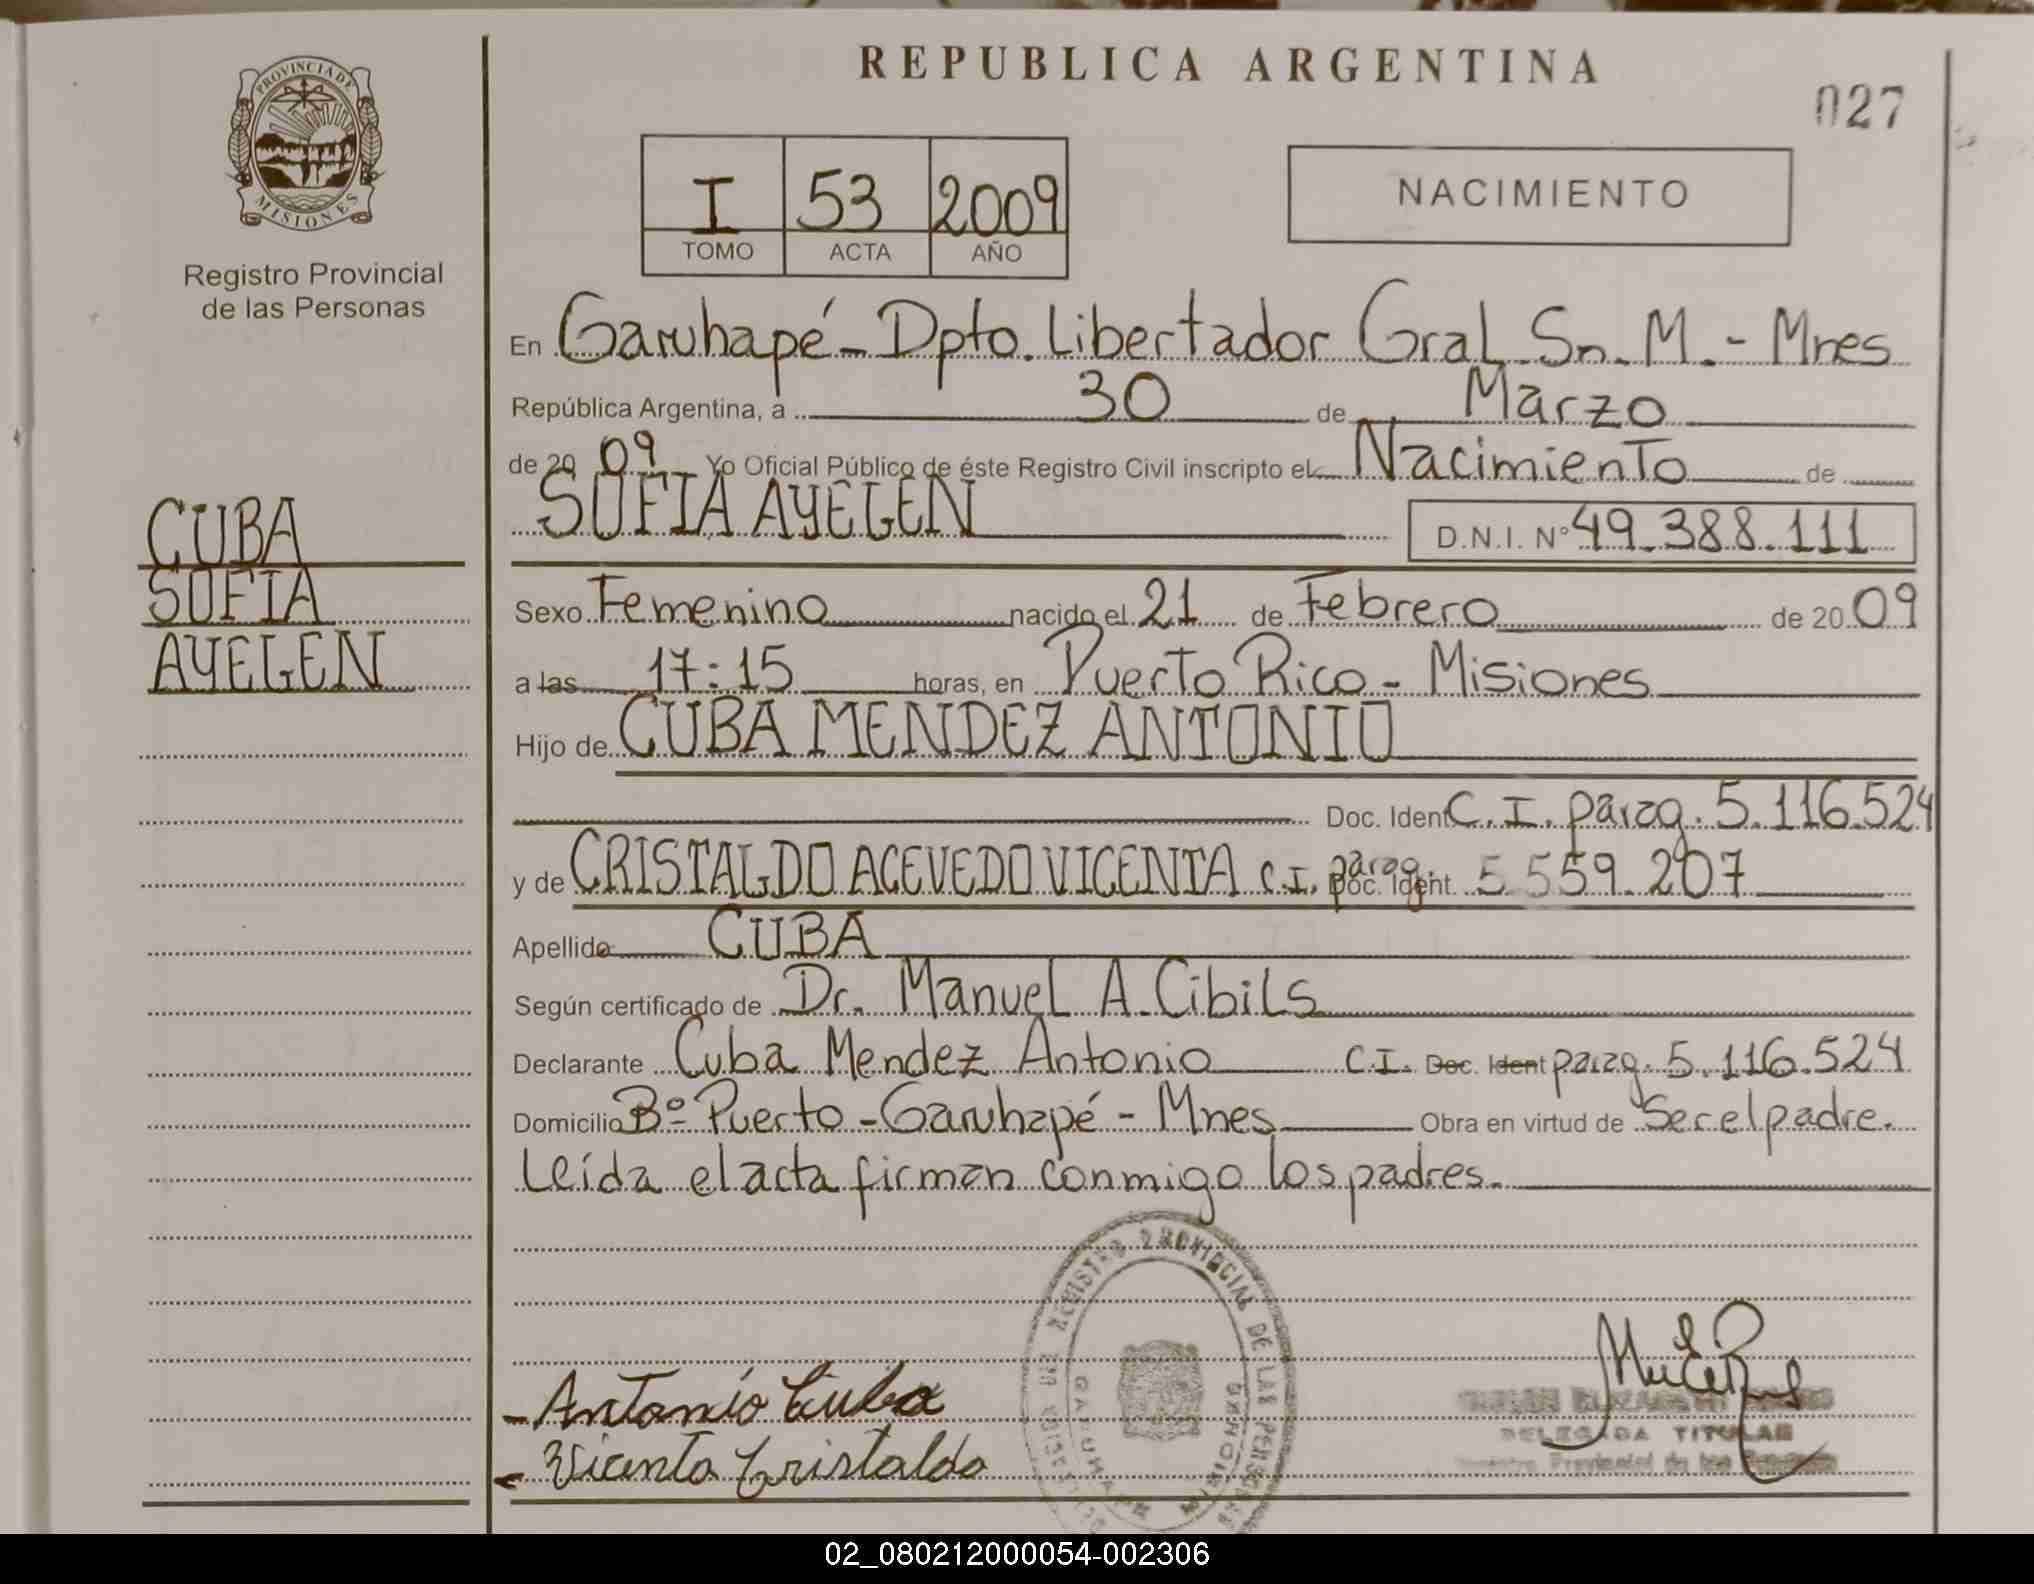 REPUBLICA ARGENTINA
027
PROVINCIA DE
MISIONES
Registro Provincial
de las Personas
I 53 2009
TOMO ACTA AÑO
NACIMIENTO
En Garuhapé - Dpto. Libertador Gral Sn. M. - Mnes
República Argentina, a 30 de Marzo
de 20 09 Yo Oficial Público de éste Registro Civil inscripto el Nacimiento de
SOFIA AYELEN D.N.I. Nº 49.388.111
CUBA
SOFIA
AYELEN
Sexo Femenino nacido el 21 de Febrero de 20 09
a las 17:15 horas, en Puerto Rico - Misiones
Hijo de CUBA MENDEZ ANTONIO
Doc. Ident C.I. parag. 5.116.524
y de CRISTALDO ACEVEDO VICENTA C.I. parag. Doc. Ident 5.559.207
Apellido CUBA
Según certificado de Dr. Manuel A. Cibils
Declarante Cuba Mendez Antonio C.I. Doc. Ident parag. 5.116.524
Domicilio Bº Puerto - Garuhapé - Mnes Obra en virtud de Ser el padre.
Leída el acta firman conmigo los padres.
REGISTRO PROVINCIAL DE LAS PERSONAS
GARUHAPE
MISIONES
- Antonio Cuba
- Vicenta Cristaldo
DELEGADA TITULAR
Registro Provincial de las Personas
02_080212000054-002306